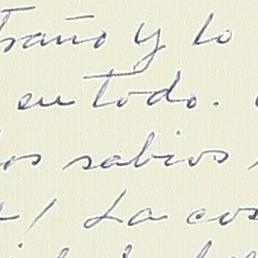 traño y lo
en todo.
los sabios
! La cos